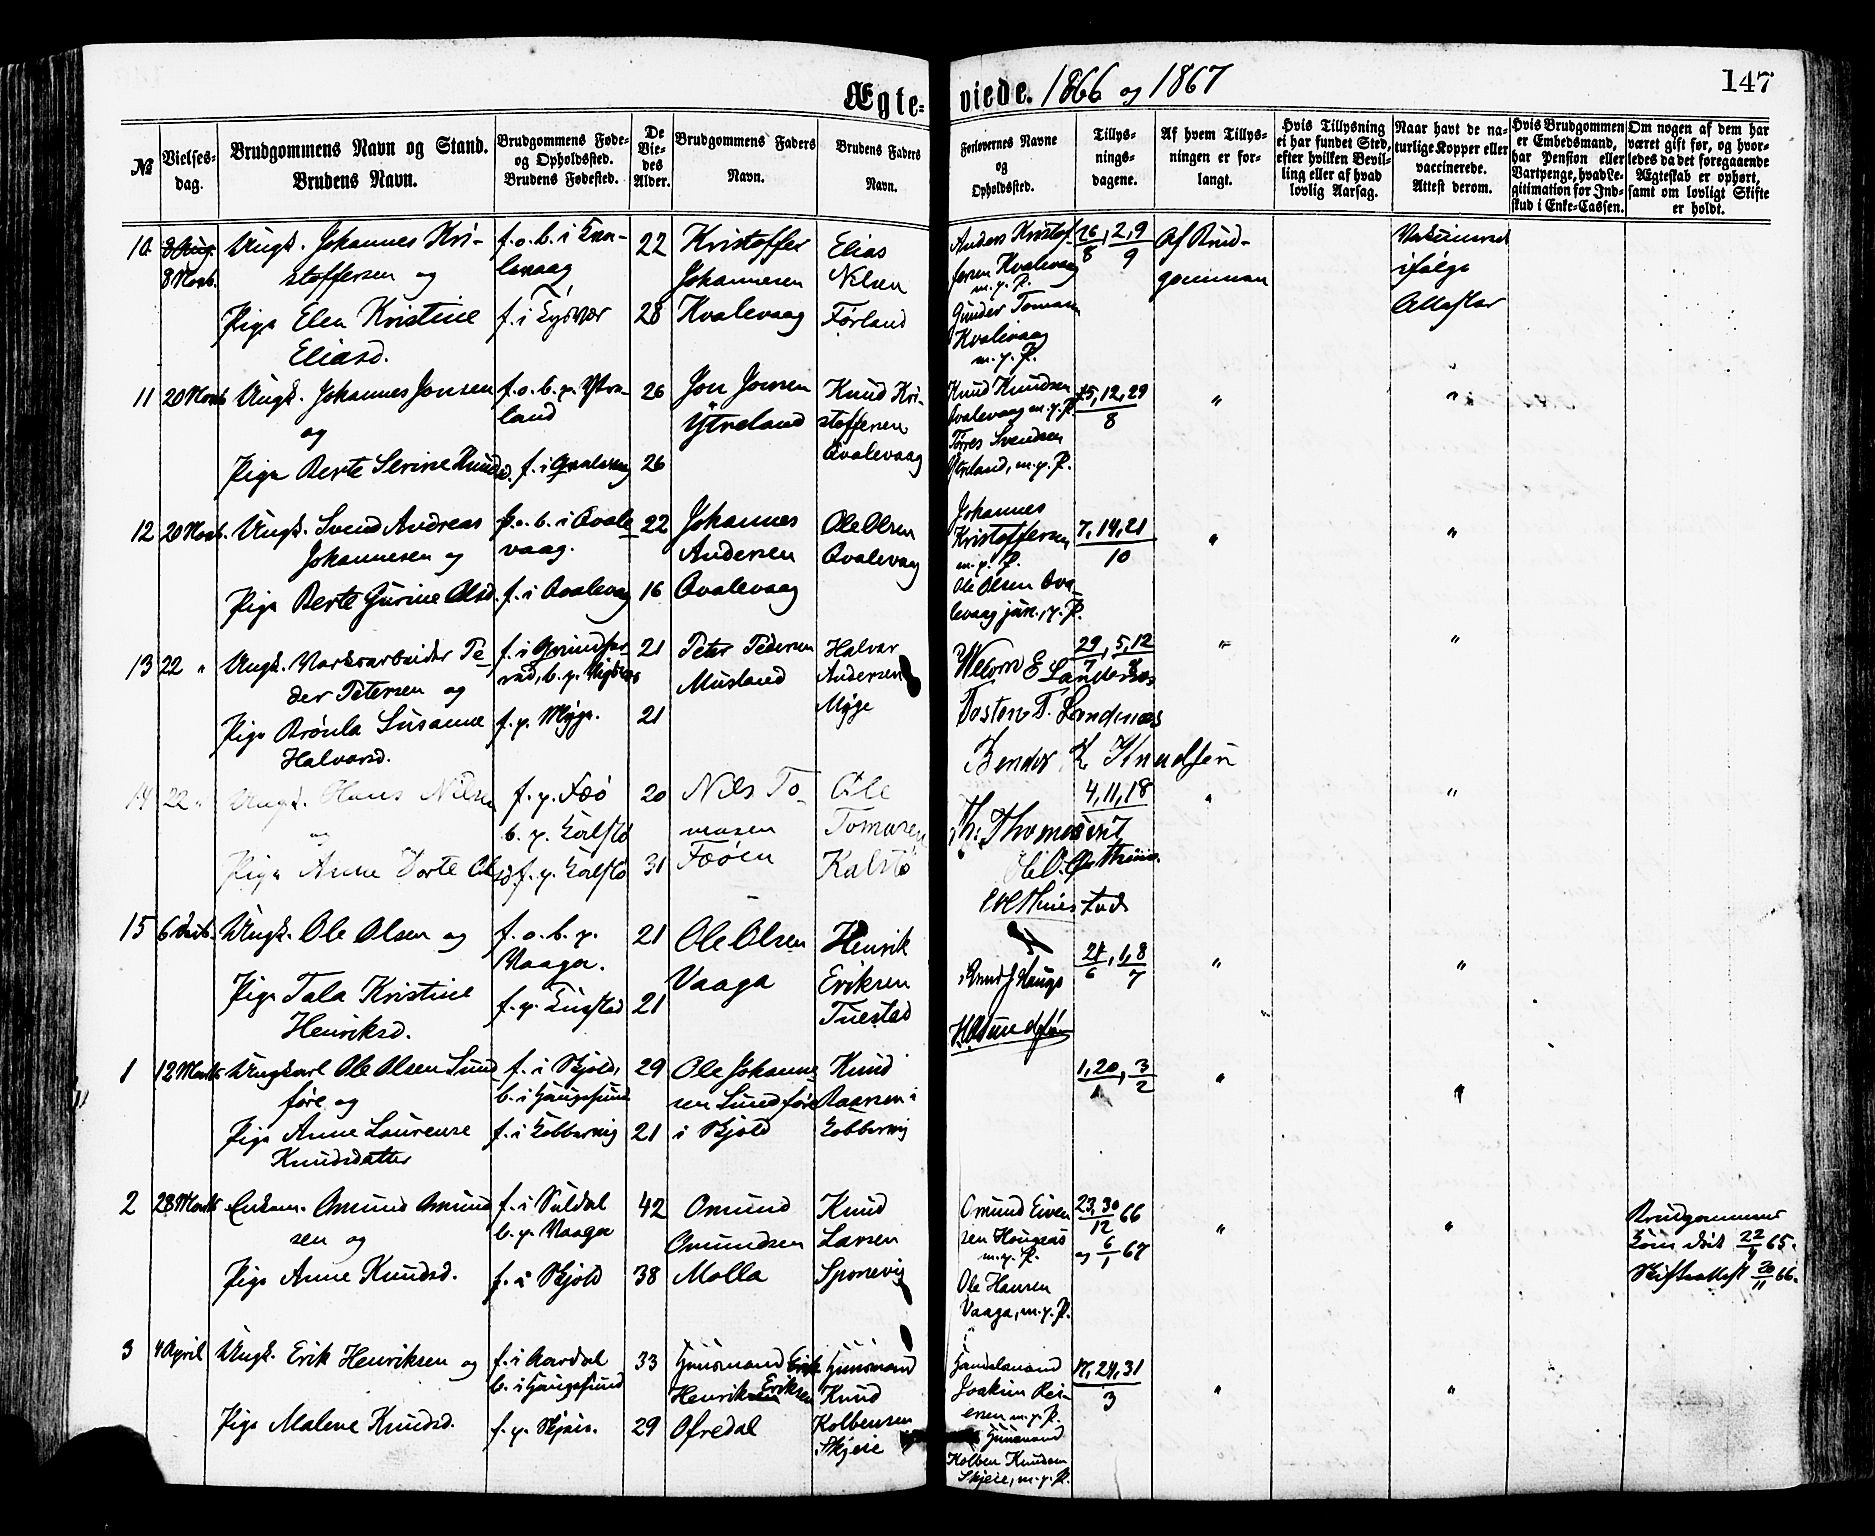 Ægte-viede. 1866 og 1867
147
№
Vielses-dag.
Brudgommens Navn og Stand.
Brudens Navn.
Brudgommens Føde-
og Opholdssted.
Brudens Fødested.
De
Vie-
des
Alder.
Brudgommens Faders
Navn.
Brudens Faders
Navn.
Forlovernes Navne
og
Opholdssted.
Tillys-
nings-
dagene.
Af hvem Tillys-
ningen er for-
langt.
Hvis Tillysning
ei har fundet Sted,
efter hvilken Bevil-
ling eller af hvad
lovlig Aarsag.
Naar havt de na-
turlige Kopper eller
vaccinerede.
Attest derom.
Hvis Brudgommen
er Embedsmand,
har Pension eller
Vartpenge, hvad Le-
gitimation for Ind-
skud i Enke-Cassen.
Om nogen af dem har
været gift før, og hvor-
ledes da det foregaaende
Ægteskab er ophørt,
samt om lovligt Skifte
er holdt.
10. 8 Aug. 8 Novb.
Ungk. Johannes Kri-
stoffersen og
Pige Elen Kristine
Eliasd.
f. o. b. i Kva-
levaag
f. i Tysvær
22
28
Kristoffer
Johannesen
Kvalevaag
Elias
Nilsen
Førland
Anders Kristof-
fersen Kvalevaag
m. p. P.
Gunder Tomasn
Kvalevaag
m. p. P.
26/8, 2, 9/9
Af Brud-
gommen
Vakcinered
ifølge
Attester
11 20 Novb
Ungk. Johannes Jonsen
og
Pige Berte Serine Knudsd.
f. o. b. p. Ystre-
land
f. i Qvalevaag
26
26
Jon Jonsen
Ytreland
Knud Kri-
stoffersen
Qvalevaag
Knud Knudsen
Qvalevaag m. p. P.
Tørres Svendsen
Ytreland, m. p. P.
15, 12, 29/8
"
"
12 20 Novb.
Ungk. Svend Andreas
Johannesen og
Pige Berte Gurine Olsd.
f. o. b. i Qvale-
vaag.
f. i Qvalevaag
22
16
Johannes
Andersen
Qvalevaag
Ole Olsen
Qvalevaag
Johannes
Kristoffersen
m. p. P.
Ole Olsen Qva-
levaag jun., p. P.
7, 14, 21/10
"
"
13 22 "
Ungk. Værksarbeider Pe-
der Petersen og
Pige Brønla Susanne
Halvorsd.
f. p. Myge.
21
21
Peter Pedersen
Musland
Halvor
Andersen
Myge
Tosten T. Landnæs
29/7, 5, 12/8
"
"
14 22 "
Ungk. Hans Nilsen
og
Pige Anne Dorte Olsd.
f. p. Fæø
b. p. Kalstø
f. p. Kalstø
20
31
Nils To-
masen
Fæøen
Ole
Tomasen
Kalstø
Knudsen
4, 11, 18
"
"
15 6 Decb.
Ungk. Ole Olsen og
Pige Tala Kristine
Henriksd.
f. o. b. p.
Vaaga.
f. p. Tuestad
21
21
Ole Olsen
Vaaga
Henrik
Eriksen
Tuestad
24/6, 1, 8/7
"
"
1 12 Marts
Ungkarl Ole Olsen Sund-
føre og
Pige Anne Laurense
Knudsdatter
f. i Skjold,
b. i Haugesund
f. i Kobbervig
29
21
Ole Johanne-
sen Sundføre
i Skjold
Knud
Aanesen i
Kobbervig
1, 20/1, 3/2
"
"
2 28 Marts
Enkem. Omund Omund-
sen og
Pige Anne Knudsd.
f. i Suldal
b. p. Vaaga
f. i Skjold
42
38
Omund
Omundsen
Molla
Knud
Larsen
Sponevig
Omund Eiven
sen Haugeas
m. p. P.
Ole Hansen
Vaaga, m. p. P.
23, 30/12 66
og 6/1 67
"
"
Brudgommens
Kone død 22/4 65.
Skifteattest 20/11 66.
3 4 April
Ungk. Erik Henriksen og
Pige Malene Knudsd.
f. i Aardal
b. i Haugesund
f. p. Skjeie.
33
29
Huusmand Erik
Henriksen Eriksen
Øfredal
Huusmand
Knud
Kolbensen
Skjeie
Handelsmand
Joakim Rei-
ersen m. p. P.
Huusmand
Kolben Knudsen
Skjeie, m. p. P.
17, 24, 31/3
"
"